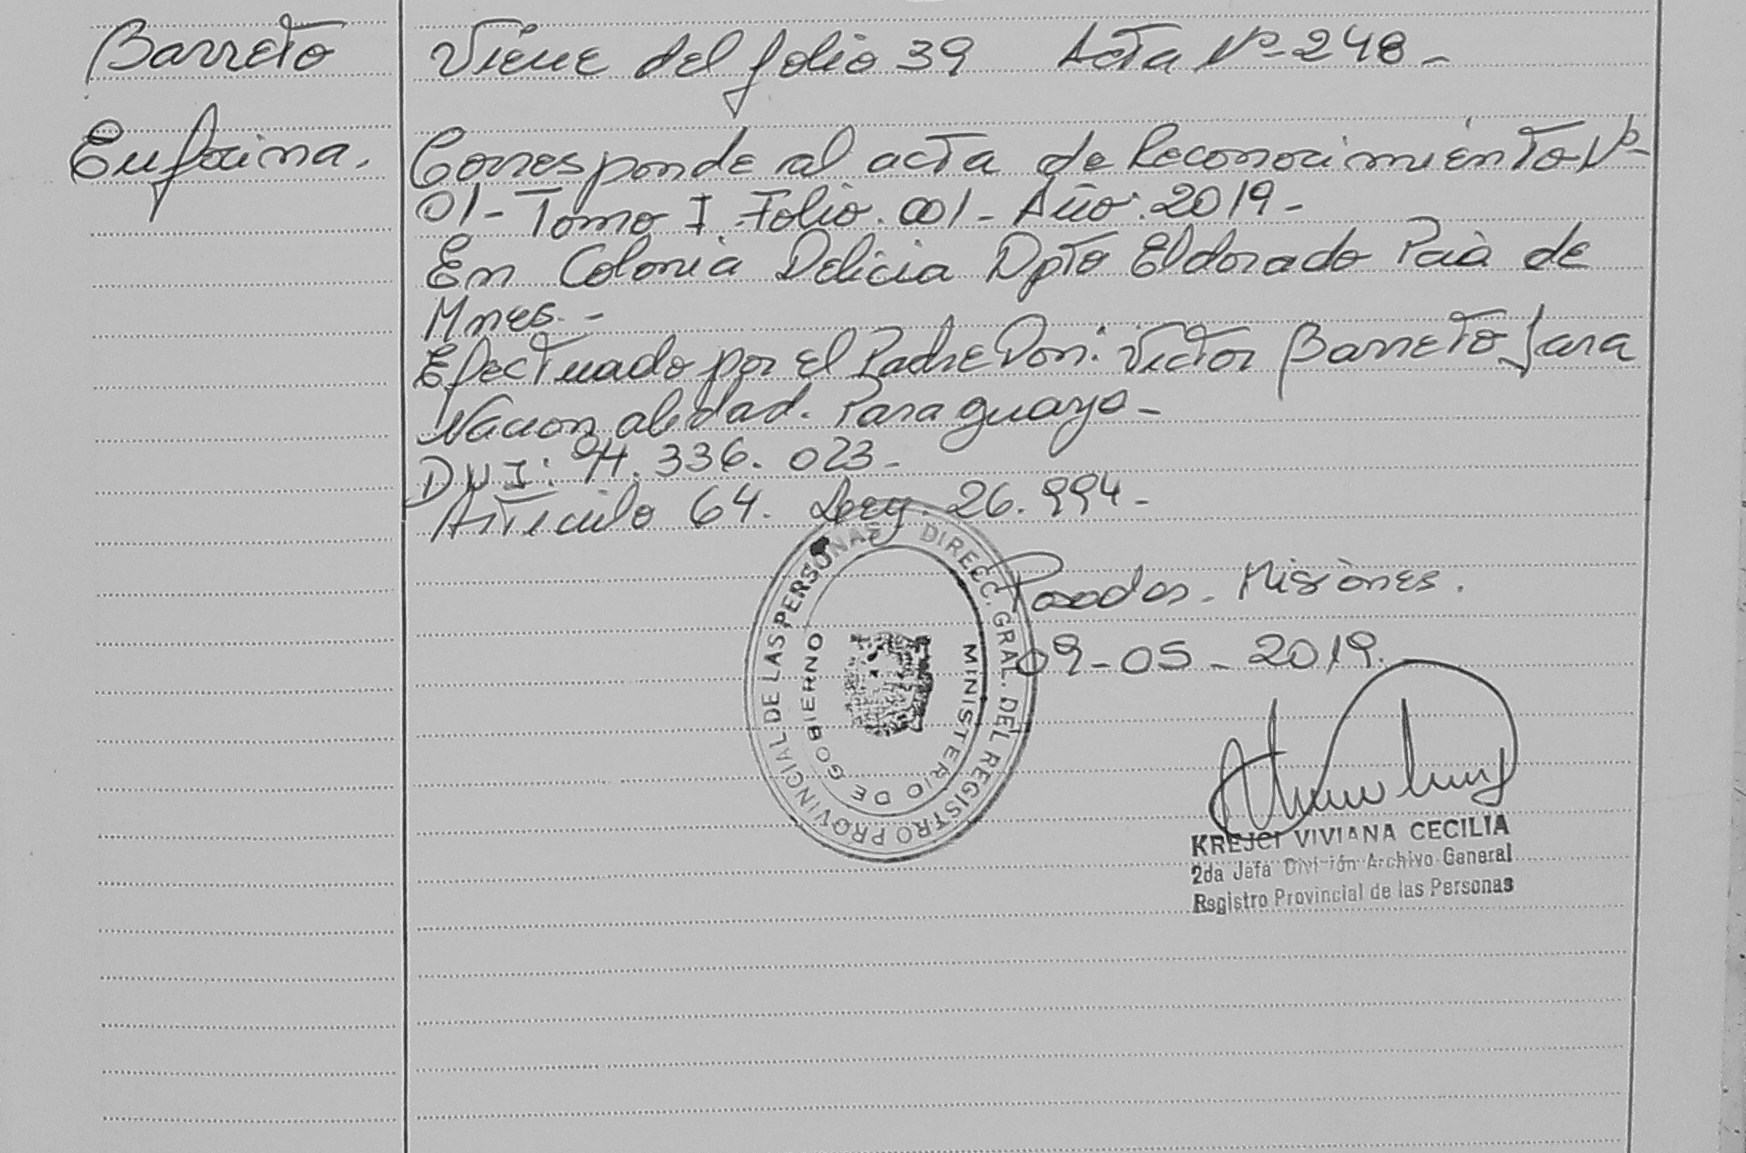 Barreto
Eufracina.
Viene del folio 39 Acta Nº 248.-
Corresponde al acta de Reconocimiento Nº
01- Tomo I Folio. 001- Año: 2019-
En Colonia Delicia Dpto Eldorado Pcia de
Mnes.-
Efectuado por el Padre Don: Victor Barreto Jara
Nacionalidad. Paraguayo-
DNI: 94.336.023-
Articulo 64. Ley. 26.994-
Posadas. Misiones.
09-05-2019.
DIRECC. GRAL. DEL REGISTRO PROVINCIAL DE LAS PERSONAS
MINISTERIO DE GOBIERNO
KREJCI VIVIANA CECILIA
2da Jefa División Archivo General
Registro Provincial de las Personas